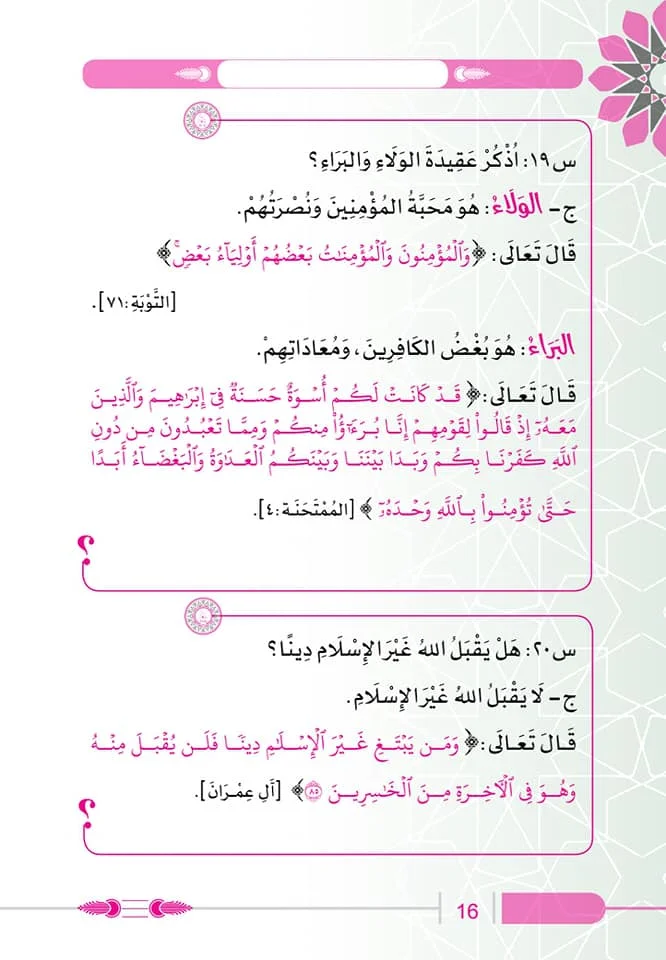 س١٩: اُذْكُرْ عَقِيدَةَ الوَلَاءِ وَالبَرَاءِ؟
ج- الوَلَاءُ: هُوَ مَحَبَّةُ المُؤْمِنِينَ وَنُصْرَتُهُمْ.
قَالَ تَعَالَى: ﴿وَٱلْمُؤْمِنُونَ وَٱلْمُؤْمِنَٰتُ بَعْضُهُمْ أَوْلِيَآءُ بَعْضٍۚ﴾
[التَّوْبَةِ:٧١].
البَرَاءُ: هُوَ بُغْضُ الكَافِرِينَ، وَمُعَادَاتِهِمْ.
قَالَ تَعَالَى: ﴿قَدْ كَانَتْ لَكُمْ أُسْوَةٌ حَسَنَةٌ فِىٓ إِبْرَٰهِيمَ وَٱلَّذِينَ
مَعَهُۥٓ إِذْ قَالُوا۟ لِقَوْمِهِمْ إِنَّا بُرَءَٰٓؤُا۟ مِنكُمْ وَمِمَّا تَعْبُدُونَ مِن دُونِ
ٱللَّهِ كَفَرْنَا بِكُمْ وَبَدَا بَيْنَنَا وَبَيْنَكُمُ ٱلْعَدَٰوَةُ وَٱلْبَغْضَآءُ أَبَدًا
حَتَّىٰ تُؤْمِنُوا۟ بِٱللَّهِ وَحْدَهُۥٓ﴾ [المُمْتَحَنَة:٤].
؟
س٢٠: هَلْ يَقْبَلُ اللهُ غَيْرَ الإِسْلَامِ دِينًا؟
ج- لَا يَقْبَلُ اللهُ غَيْرَ الإِسْلَامِ.
قَالَ تَعَالَى: ﴿وَمَن يَبْتَغِ غَيْرَ ٱلْإِسْلَٰمِ دِينًا فَلَن يُقْبَلَ مِنْهُ
وَهُوَ فِى ٱلْـَٔاخِرَةِ مِنَ ٱلْخَٰسِرِينَ ٨٥﴾ [آلِ عِمْرَانَ].
؟
16